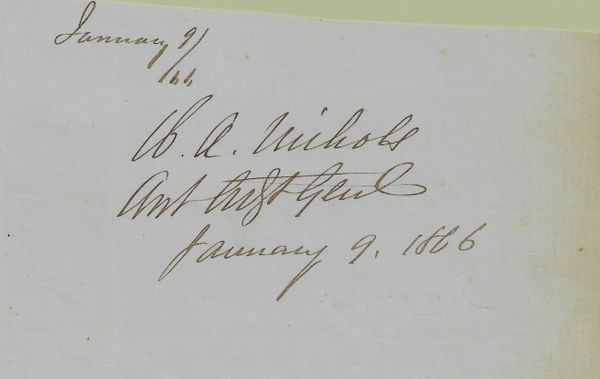 January 9/
/66
W. A. Nichols
Asst Adjt Genl
January 9. 1866